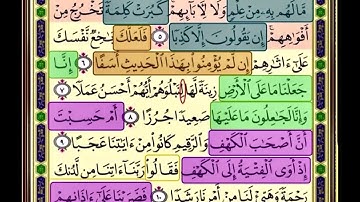 مَّا لَهُم بِهِۦ مِنْ عِلْمٍ وَلَا لِءَابَآئِهِمْ كَبُرَتْ كَلِمَةً تَخْرُجُ مِنْ
أَفْوَٰهِهِمْ إِن يَقُولُونَ إِلَّا كَذِبًا ٥ فَلَعَلَّكَ بَٰخِعٌ نَّفْسَكَ
عَلَىٰٓ ءَاثَٰرِهِمْ إِن لَّمْ يُؤْمِنُوا۟ بِهَٰذَا ٱلْحَدِيثِ أَسَفًا ٦ إِنَّا
جَعَلْنَا مَا عَلَى ٱلْأَرْضِ زِينَةً لَّهَا لِنَبْلُوَهُمْ أَيُّهُمْ أَحْسَنُ عَمَلًا ٧
وَإِنَّا لَجَٰعِلُونَ مَا عَلَيْهَا صَعِيدًا جُرُزًا ٨ أَمْ حَسِبْتَ
أَنَّ أَصْحَٰبَ ٱلْكَهْفِ وَٱلرَّقِيمِ كَانُوا۟ مِنْ ءَايَٰتِنَا عَجَبًا ٩
إِذْ أَوَى ٱلْفِتْيَةُ إِلَى ٱلْكَهْفِ فَقَالُوا۟ رَبَّنَآ ءَاتِنَا مِن لَّدُنكَ
رَحْمَةً وَهَيِّئْ لَنَا مِنْ أَمْرِنَا رَشَدًا ١٠ فَضَرَبْنَا عَلَىٰٓ ءَاذَانِهِمْ